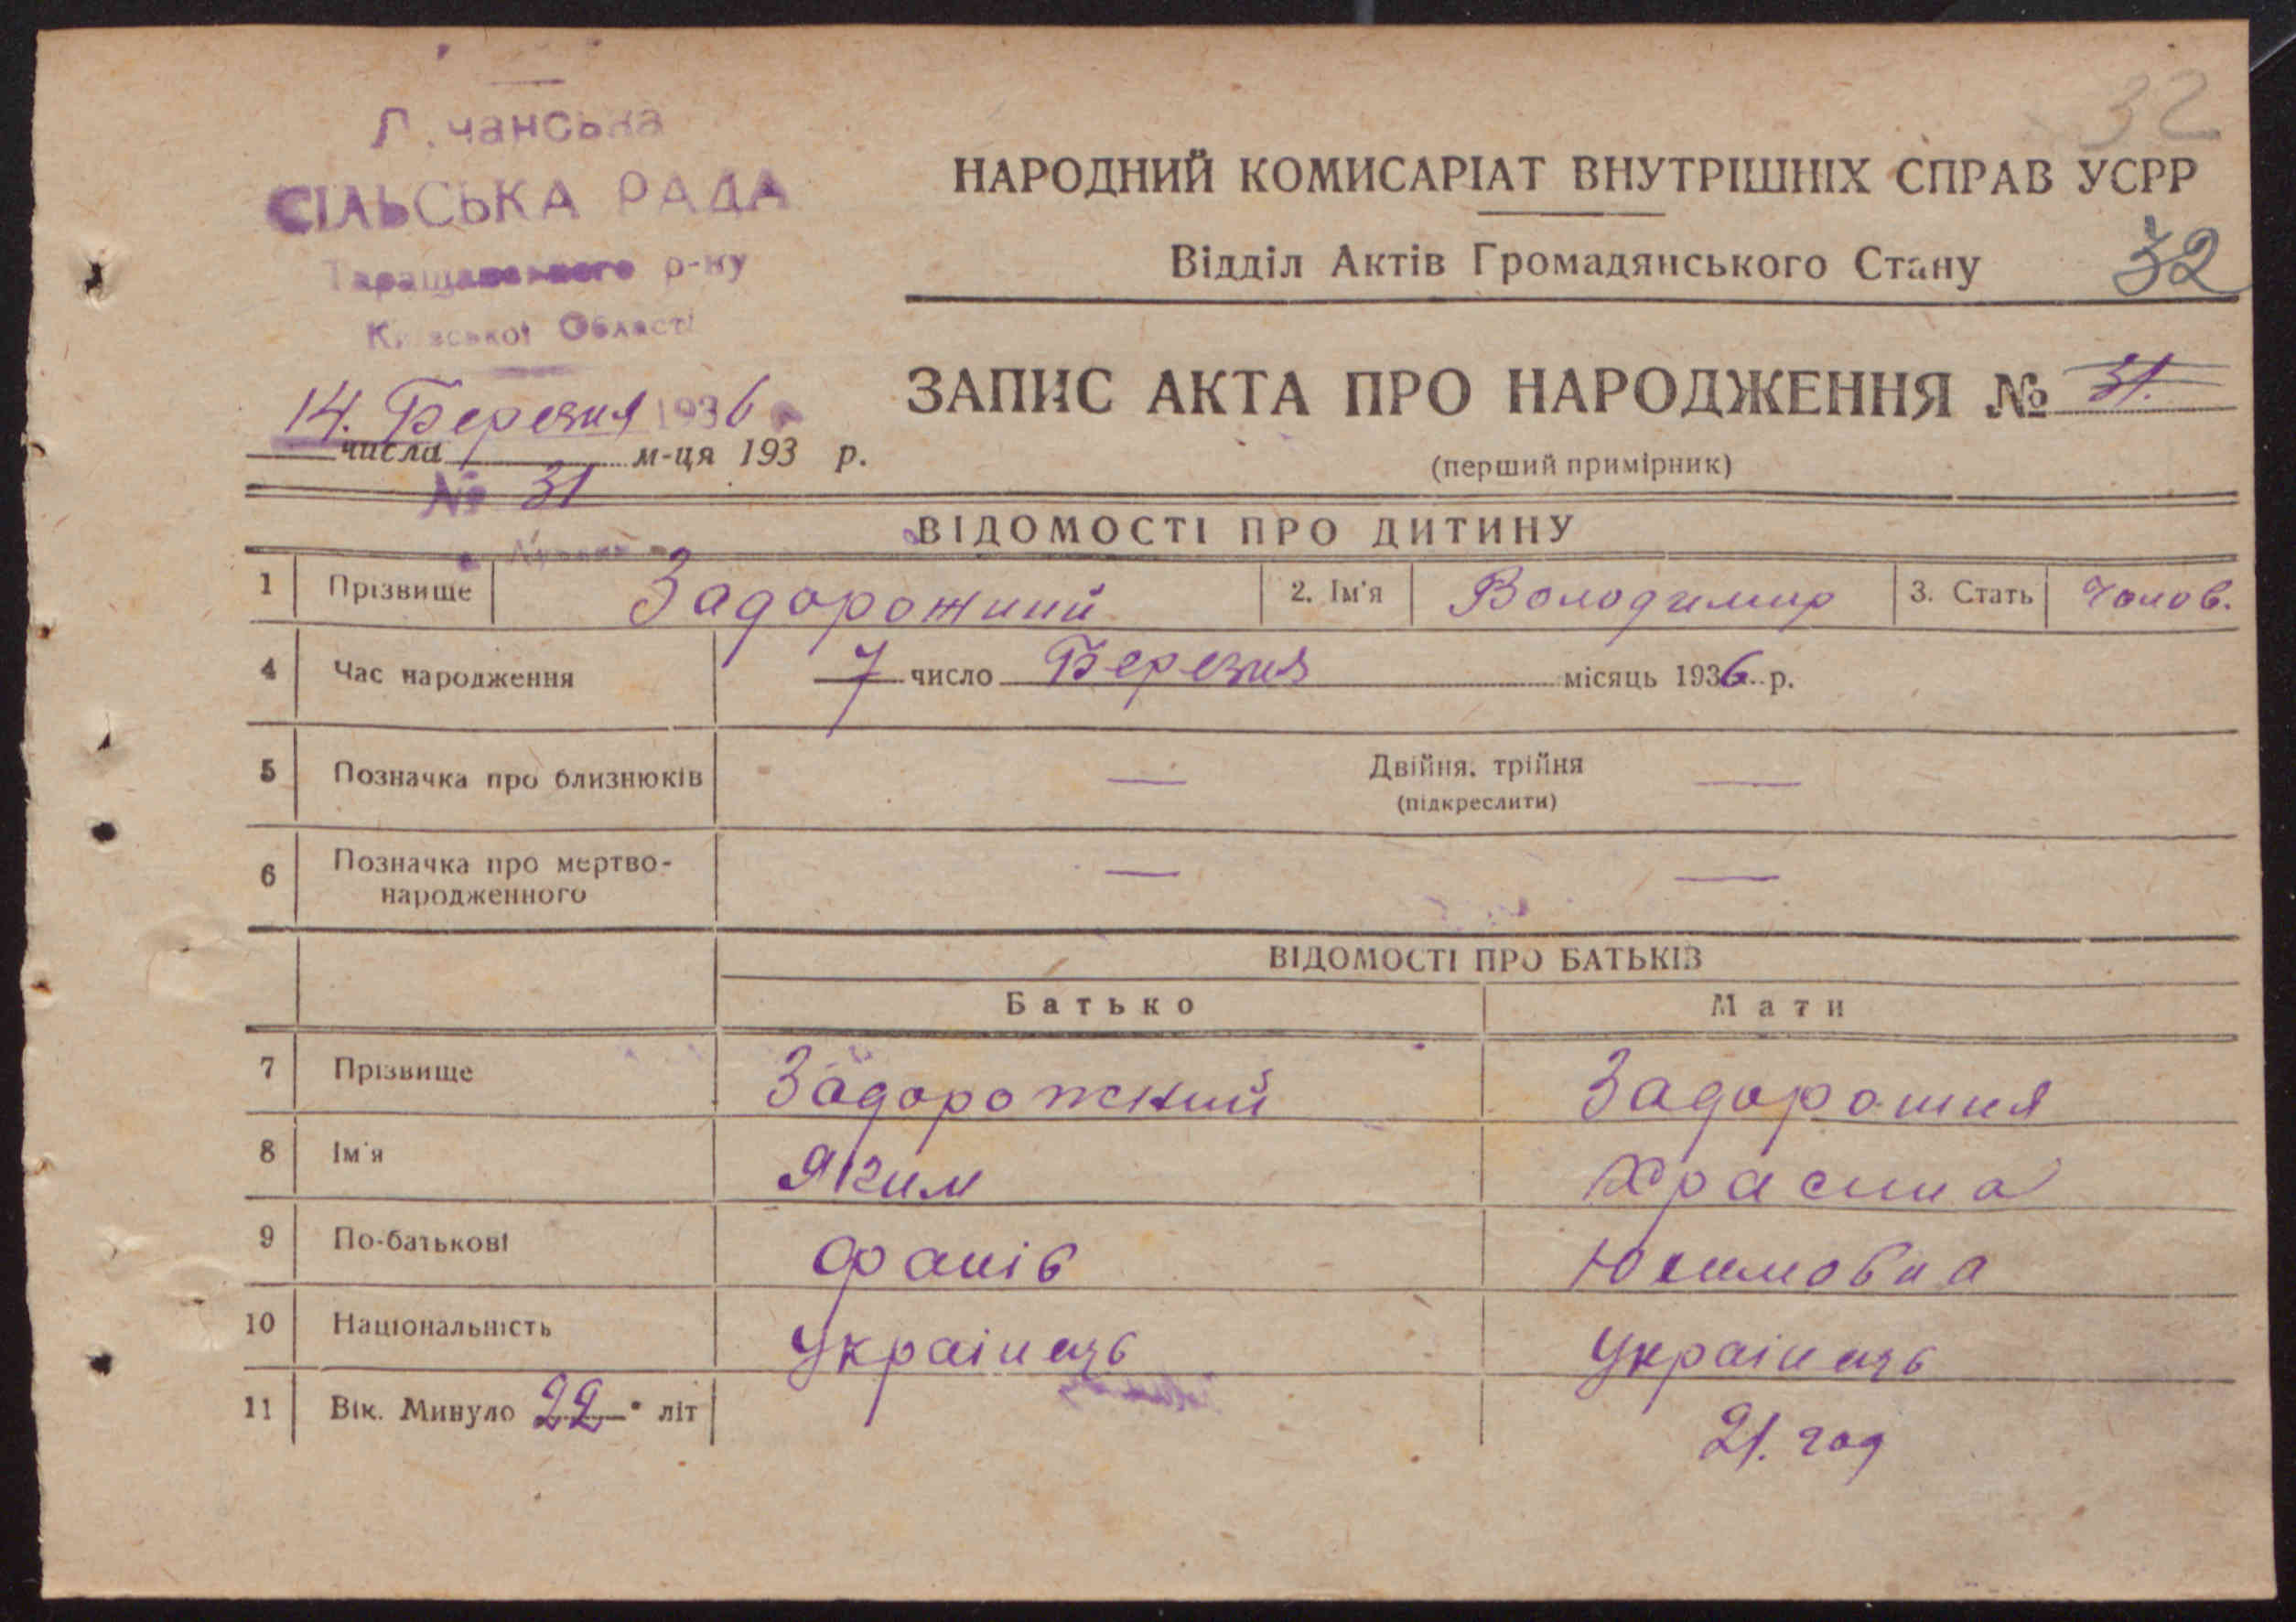 32
чанська
СІЛЬСЬКА РАДА
НАРОДНИЙ КОМИСАРІАТ ВНУТРІШНІХ СПРАВ УСРР
Таращанського р-ну
Відділ Актів Громадянського Стану 32
Київської Області
14. Березня 1936 р
числа м-ця 193 р.
ЗАПИС АКТА ПРО НАРОДЖЕННЯ № 31.
(перший примірник)
№ 31
ВІДОМОСТІ ПРО ДИТИНУ
1 Прізвище Задорожний 2. Ім'я Володимир 3. Стать Чолов.
4 Час народження 7 число Березня місяць 1936 р.
5 Позначка про близнюків — Двійня, трійня —
(підкреслити)
6 Позначка про мертво-
народженного — —
ВІДОМОСТІ ПРО БАТЬКІВ
Батько Мати
7 Прізвище Задорожний Задорошня
8 Ім'я Яким Храсина
9 По-батькові Фанів Юхимовна
10 Національність Українець Українець
11 Вік. Минуло 22 літ 21. год